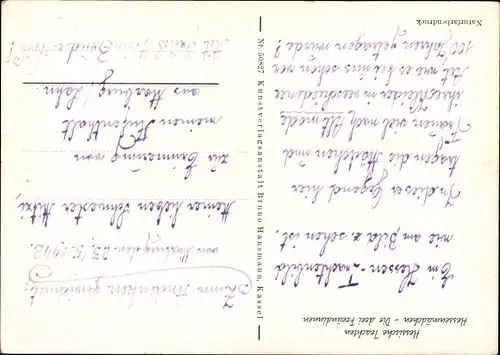 Hessische Trachten
Hessenmädchen – Die drei Freundinnen
Ein Hessen-Trachtenbild
wie am Bild z. sehen ist.
In dieser Gegend hier
tragen die Mädchen und
Frauen viel nach Alt mode
ihre Kleider in verschiedener
Art wie es bei uns schon vor
100 Jahren getragen wurde!
Naturfarbendruck
Nr. 50827 Kunstverlagsanstalt Bruno Hansmann, Kassel
Zum Andenken gewidmet.
von Marburg den 23./5.1942.
Meiner lieben Schwester Mitzi,
zur Erinnerung von
meinen Aufenthalt
aus Marburg/Lahn.
Mit Bruder